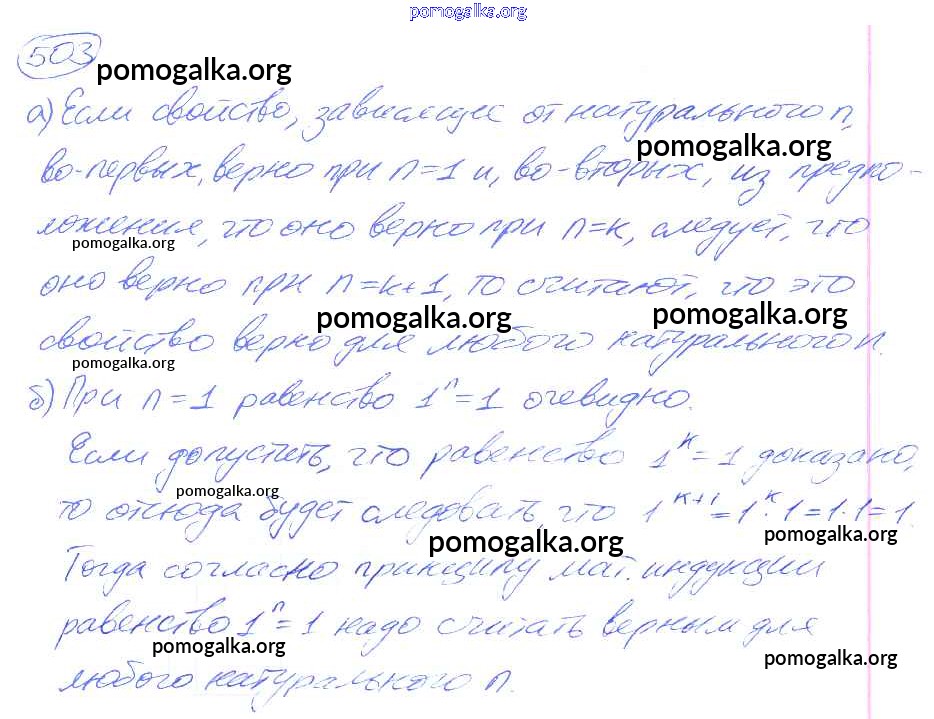 pomogalka.org
503
pomogalka.org
а) Если свойство, зависящее от натурального n,
pomogalka.org
во-первых, верно при n=1 и, во-вторых, из предпо-
ложения, что оно верно при n=k, следует, что
pomogalka.org
оно верно при n=k+1, то считают, что это
pomogalka.org
pomogalka.org
свойство верно для любого натурального n.
pomogalka.org
б) При n=1 равенство 1ⁿ=1 очевидно.
Если допустить, что равенство 1ᵏ=1 доказано,
pomogalka.org
то отсюда будет следовать, что 1ᵏ⁺¹=1ᵏ·1=1·1=1.
pomogalka.org
pomogalka.org
Тогда согласно принципу мат. индукции
равенство 1ⁿ=1 надо считать верным для
pomogalka.org
pomogalka.org
любого натурального n.